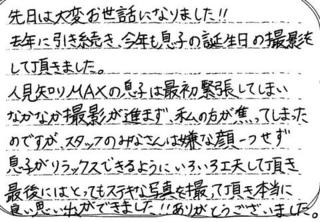 先日は大変お世話になりました!!
去年に引き続き、今年も息子の誕生日の撮影を
して頂きました。
人見知りMAXの息子は最初緊張してしまい
なかなか撮影が進まず、私の方が焦ってしまった
のですが、スタッフのみなさんは嫌な顔一つせず
息子がリラックスできるようにいろいろ工夫して頂き
最後にはとってもステキな写真を撮って頂き本当に
良い思い出ができました!!ありがとうございました。